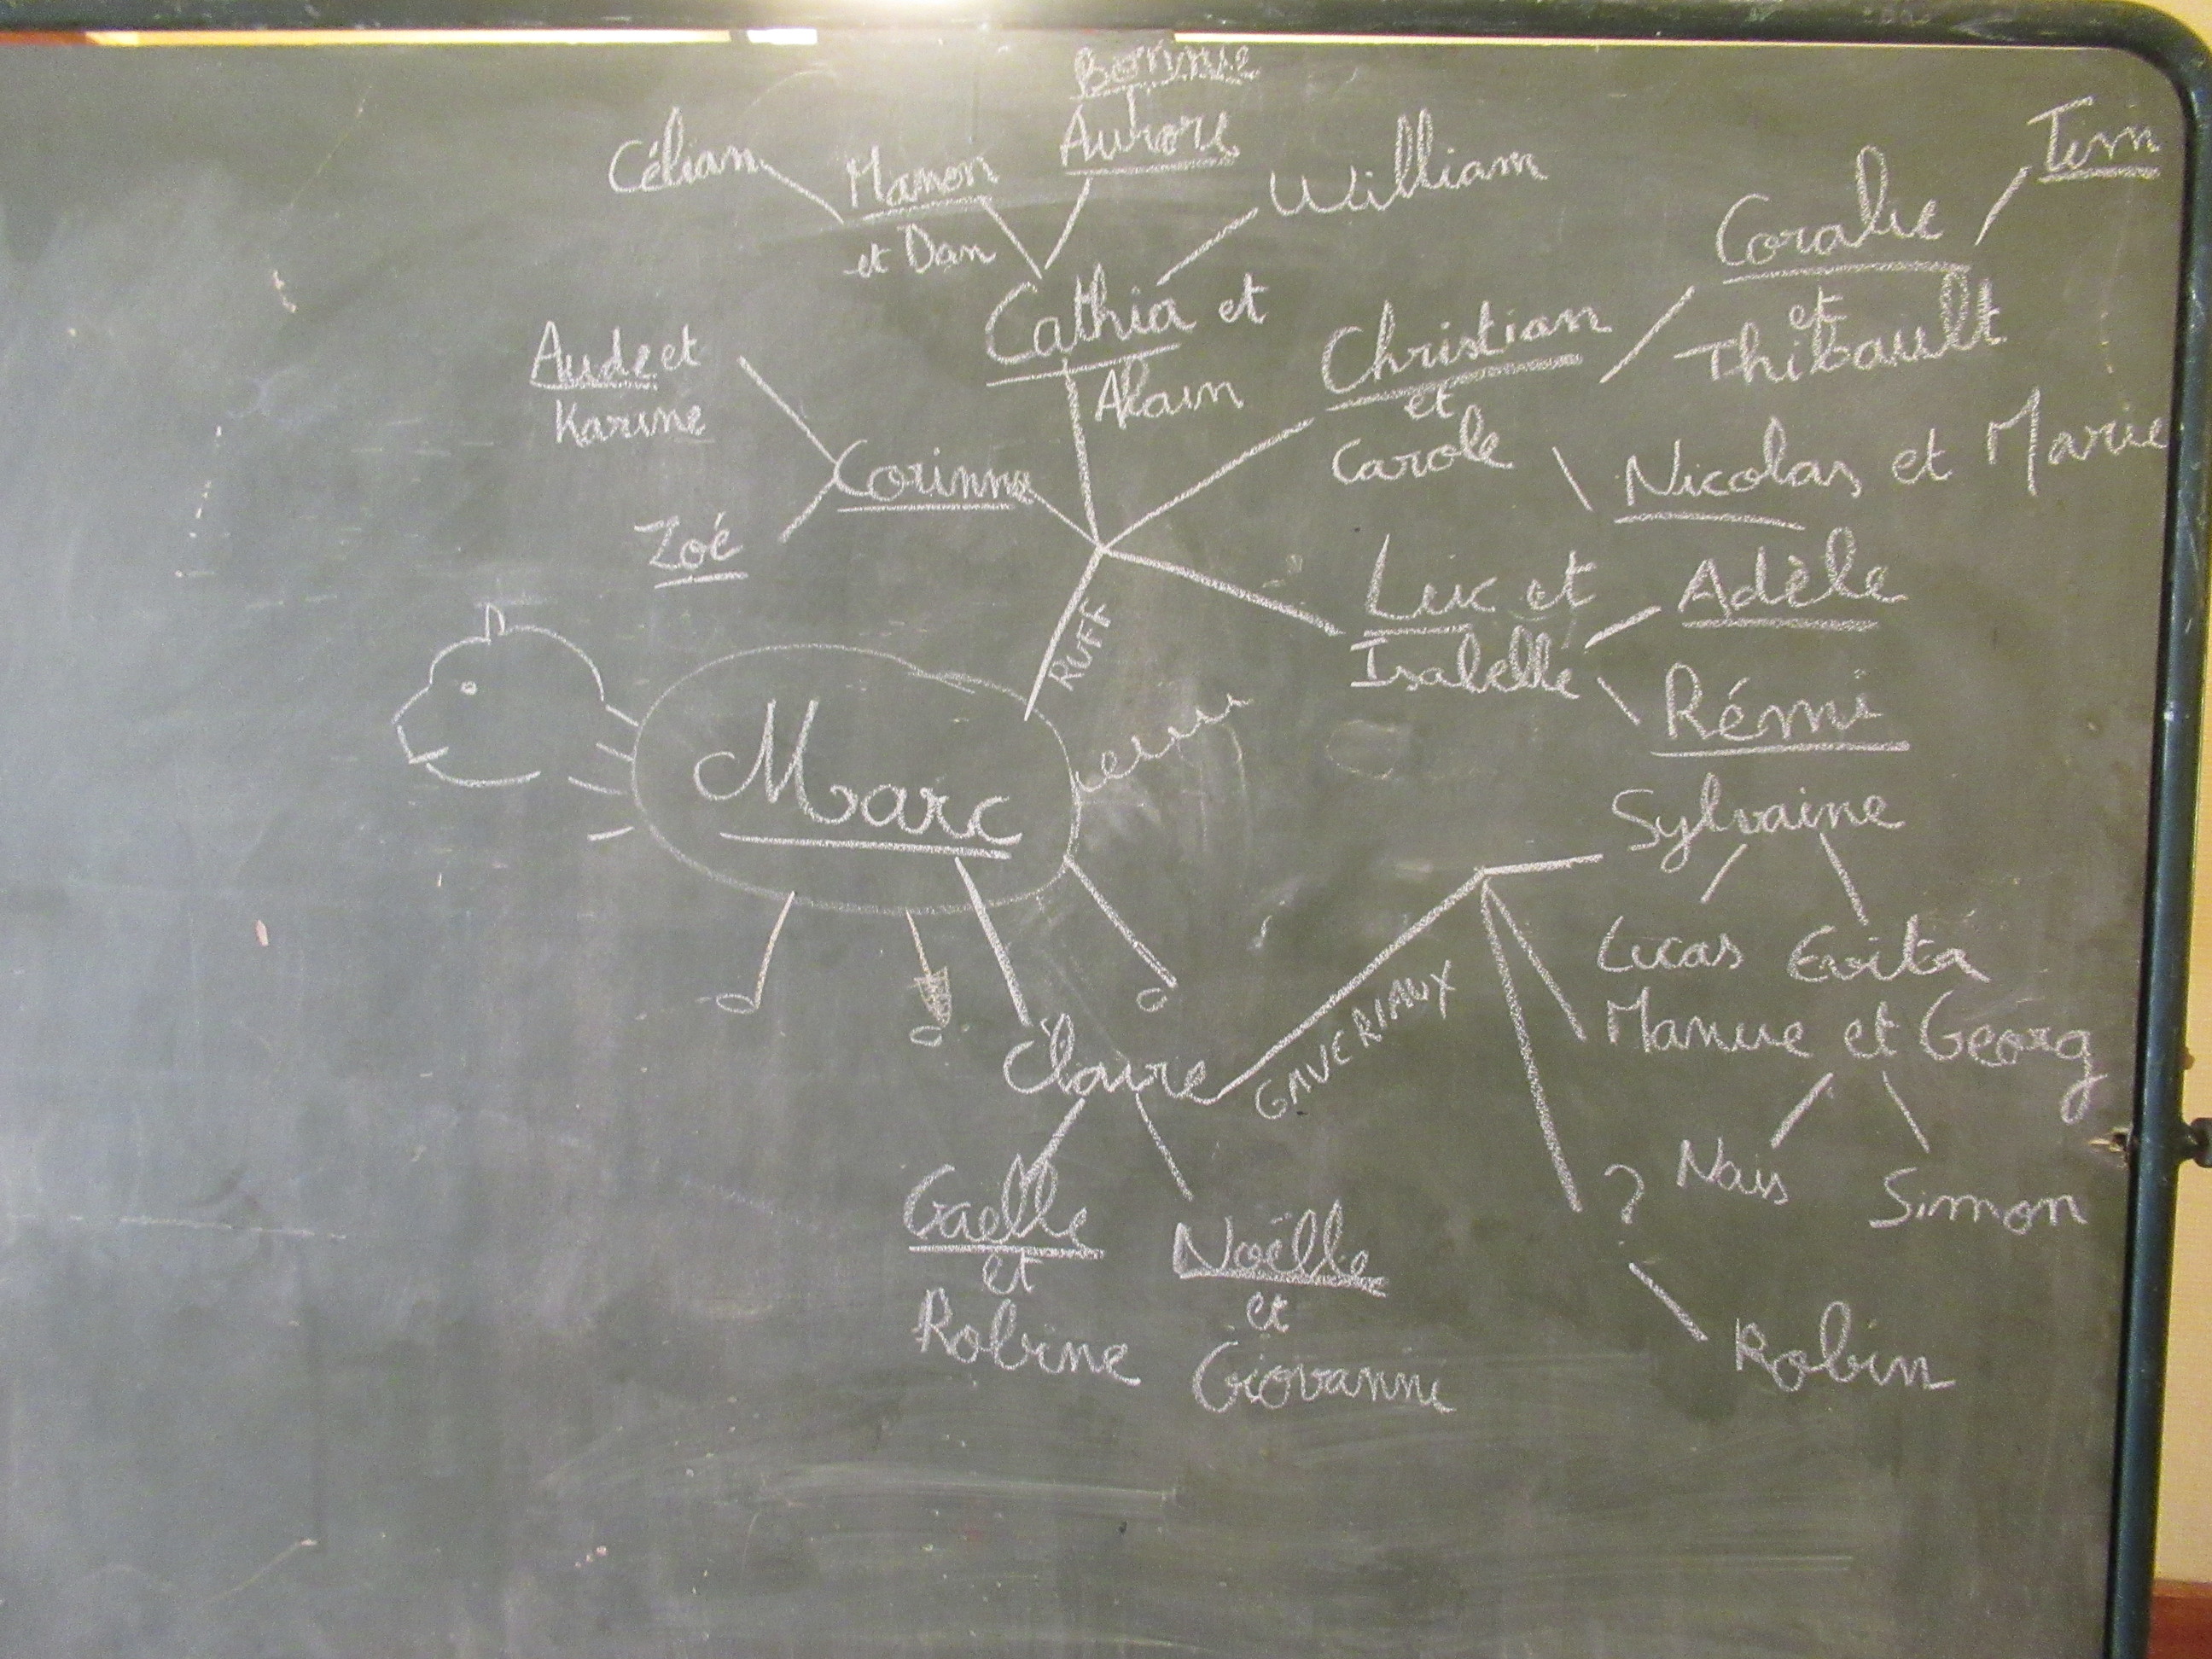 Bonnie
Aurore
Célian
Manon
et Dan
William
Tem
Coralie
et
Thibault
Cathia et
Alain
Christian
et
Carole
Aude et
Karine
Corinne
Zoé
Nicolas et Marie
Luc et
Isabelle
Adèle
Rémi
RUFF
Marc
Sylvaine
Lucas Evita
Manue et Georg
Claire
GAVERIAUX
Naïs
Simon
?
Robin
Gaelle
et
Robine
Noëlle
et
Giovanni